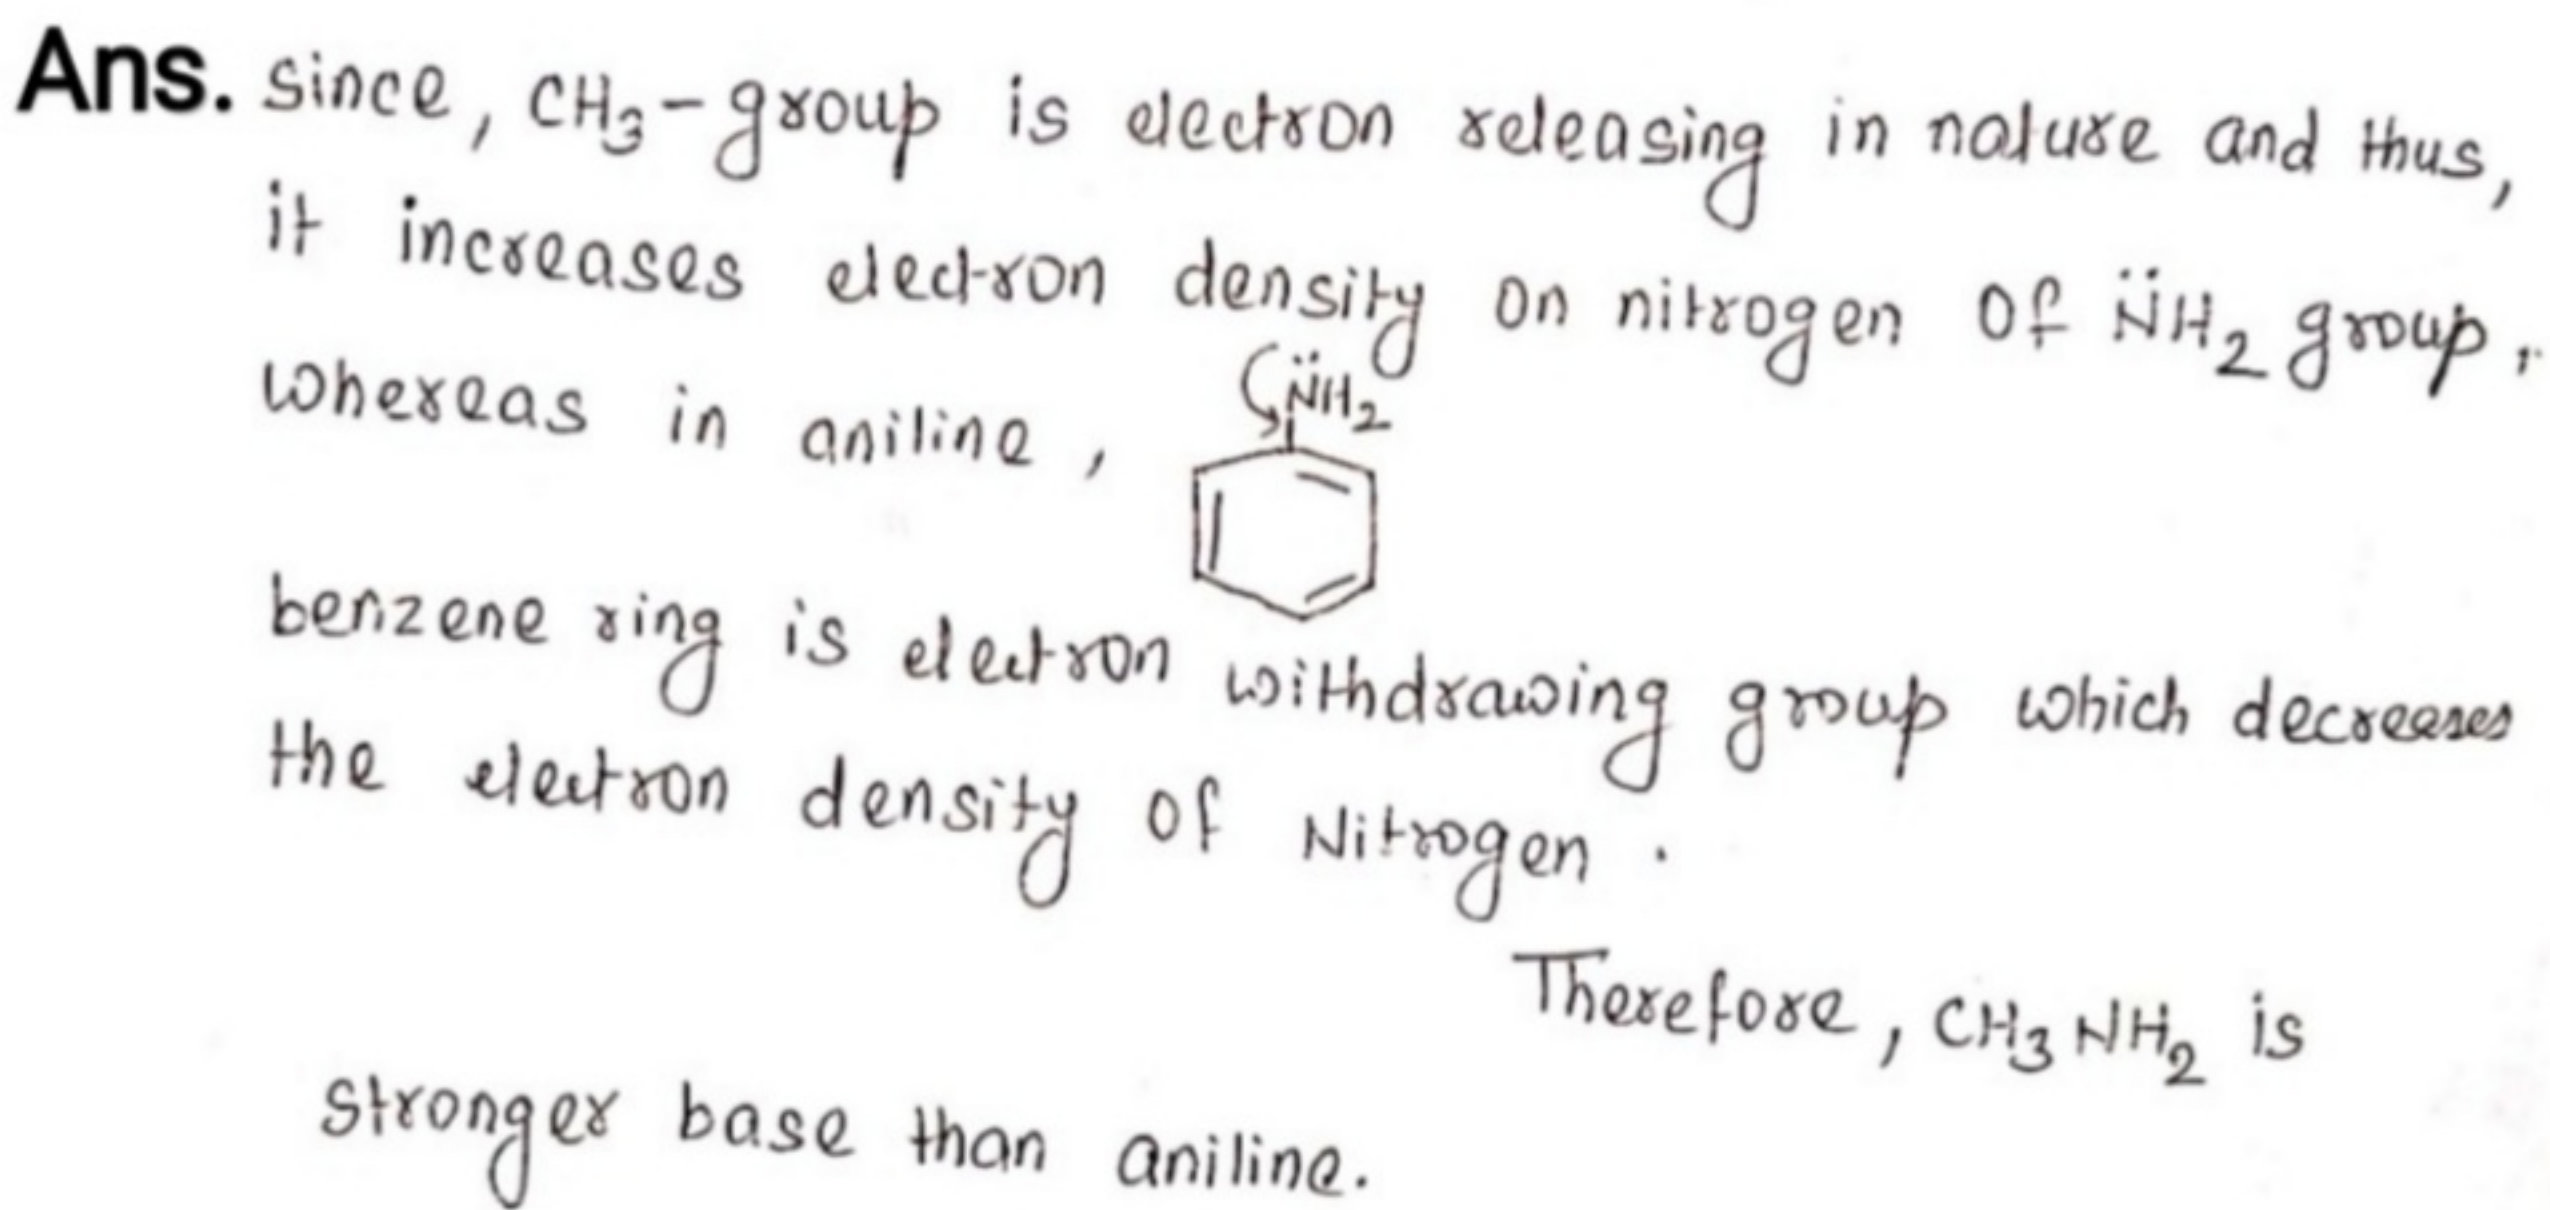 Ans. Since, CH₃-group is electron releasing in nature and thus,
it increases electron density on nitrogen of N̈H₂ group,
whereas in aniline,
N̈H₂
benzene ring is electron withdrawing group which decreases
the electron density of Nitrogen.
Therefore, CH₃NH₂ is
stronger base than aniline.